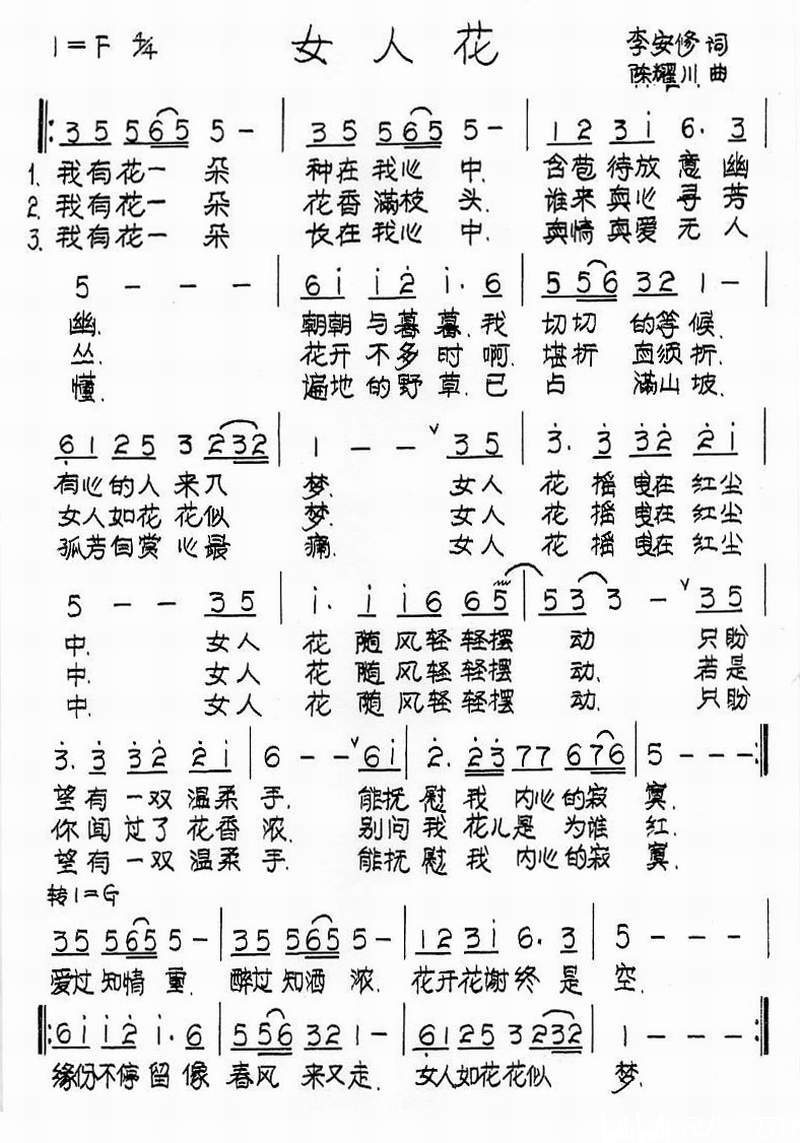 1=F 4/4 女人花 李安修 词
陈耀川 曲
3 5 5 6 5 5 - | 3 5 5 6 5 5 - | 1 2 3 i 6. 3
1. 我有花一 朵 种在我心 中. 含苞待放意 幽
2. 我有花一 朵 花香满枝 头. 谁来真心寻 芳
3. 我有花一 朵 长在我心 中. 真情真爱无 人
5 - - - | 6 i i 2 i. 6 | 5 5 5 6 3 2 1 -
幽. 朝朝与暮暮.我 切切 的等候.
丛. 花开不多时啊.堪折 直须折.
懂. 遍地的野草.已 占 满山坡.
6 1 2 5 3 2 3 2 | 1 - - 3 5 | 3. 3 3 2 2 i
有心的人来入 梦. 女人 花 摇曳在红尘
女人如花花似 梦. 女人 花 摇曳在红尘
孤芳自赏心最 痛. 女人 花 摇曳在红尘
5 - - 3 5 | i. i i 6 6 5 | 5 3 3 - 3 5
中. 女人 花 随风轻轻摆 动 只盼
中. 女人 花 随风轻轻摆 动. 若是
中. 女人 花 随风轻轻摆 动. 只盼
3. 3 3 2 2 i | 6 - - 6 i | 2. 2 3 7 7 6 7 6 | 5 - - -
望有一双温柔手. 能抚慰我 内心的寂 寞.
你闻过了花香浓. 别问我花儿是 为谁 红.
望有一双温柔手. 能抚慰我 内心的寂 寞.
转1=G
3 5 5 6 5 5 - | 3 5 5 6 5 5 - | 1 2 3 i 6. 3 | 5 - - -
爱过知情重. 醉过知酒 浓. 花开花谢终是 空.
6 i i 2 i. 6 | 5 5 6 3 2 1 - | 6 1 2 5 3 2 3 2 | 1 - - -
缘份不停留像 春风 来又走. 女人如花花似 梦.